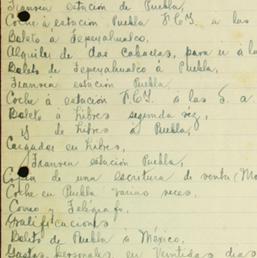 Tranvía estación de Puebla,
Coche á estación Puebla F.C.I. a las
Boleto á Tepeyahualco.
Alquiler de dos caballos, para ir á la
Boleto de Tepeyahualco á Puebla,
Tranvía estación Puebla,
Coche á estación F.C.I. a las 5. a
Boleto á Libres segunda vez,
de Libres á Puebla,
Cargador en Libres,
Tranvía estación Puebla,
Copia de una escritura de venta (Mo
Coche en Puebla varias veces.
Correo y Telégrafo,
Gratificaciones,
Boleto de Puebla á México,
Gastos personales en veintidos dias